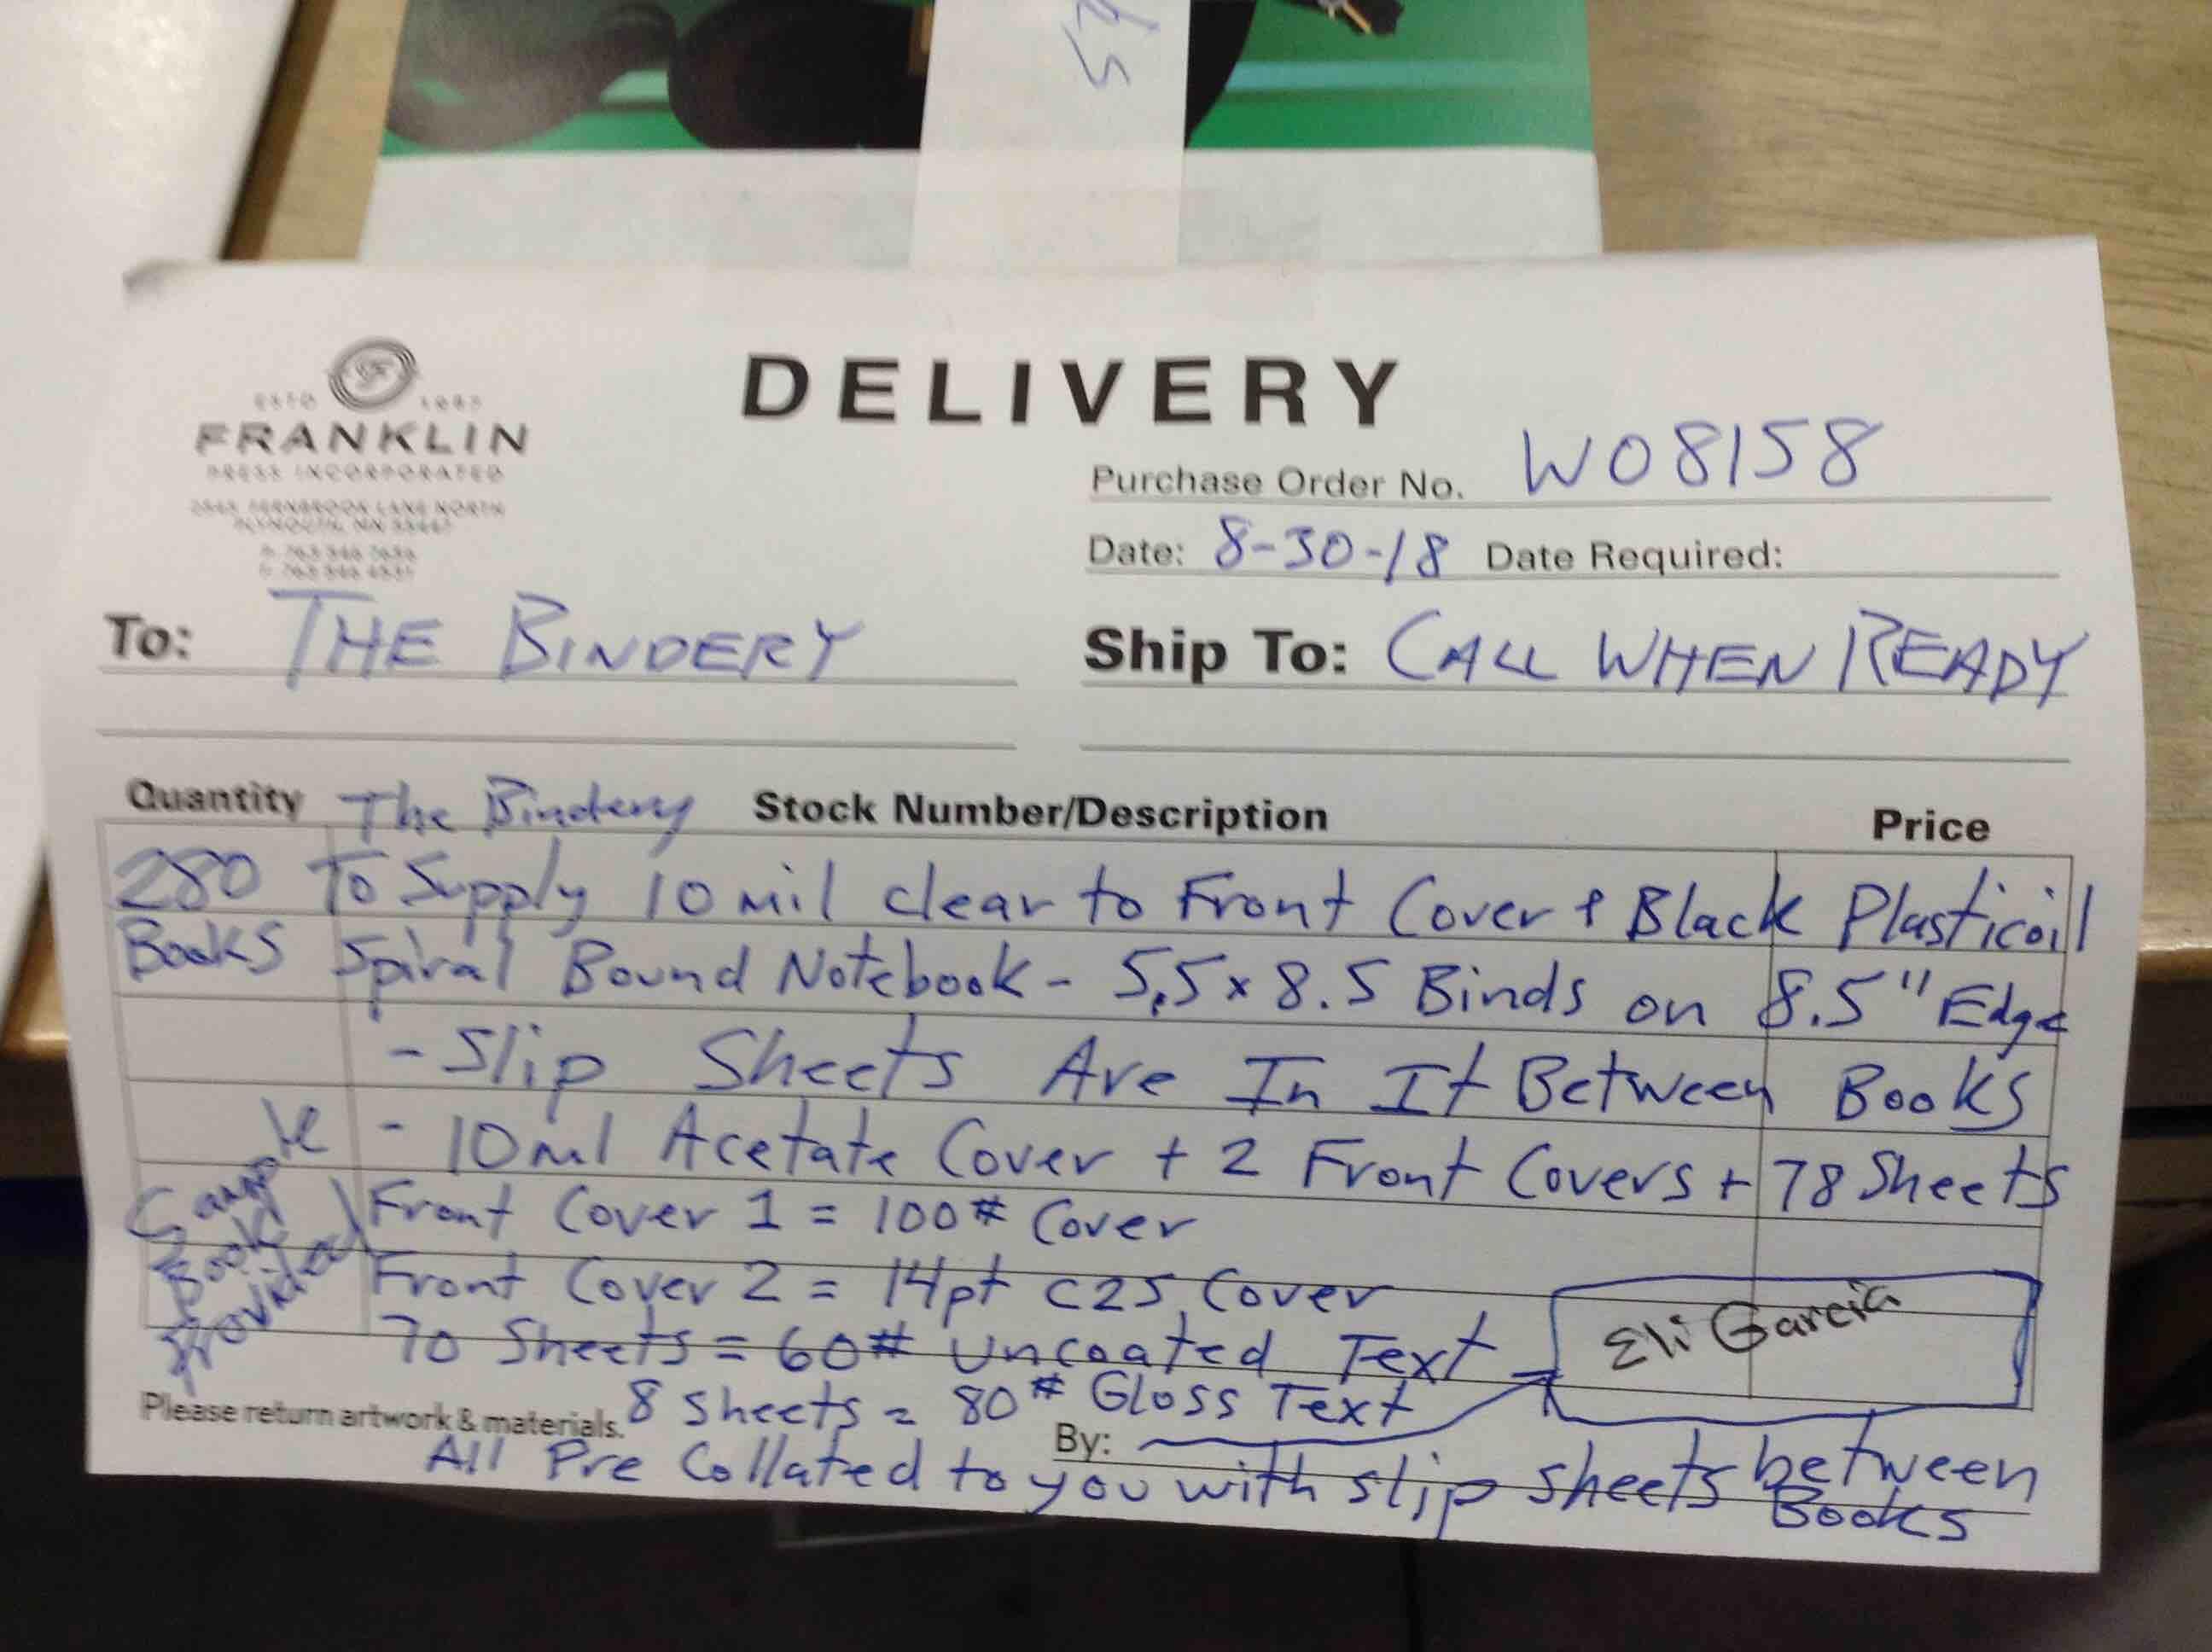 DELIVERY
FRANKLIN
PRESS INCORPORATED
PLYMOUTH, MN 55447
Purchase Order No. WO8158
Date: 8-30-18 Date Required:
To: THE BINDERY
Ship To: CALL WHEN READY
Quantity The Bindery Stock Number/Description Price
280 To Supply 10 mil clear to Front Cover + Black Plasticoil
Books Spiral Bound Notebook - 5.5 x 8.5 Binds on 8.5" Edge
- Slip Sheets Are In It Between Books
- 10 mil Acetate Cover + 2 Front Covers + 78 Sheets
Sample
Book
Provided
Front Cover 1 = 100# Cover
Front Cover 2 = 14pt C2S Cover
70 Sheets = 60# Uncoated Text
Eli Garcia
8 Sheets = 80# Gloss Text
Please return artwork & materials.
By:
All Pre Collated to you with slip sheets between
Books